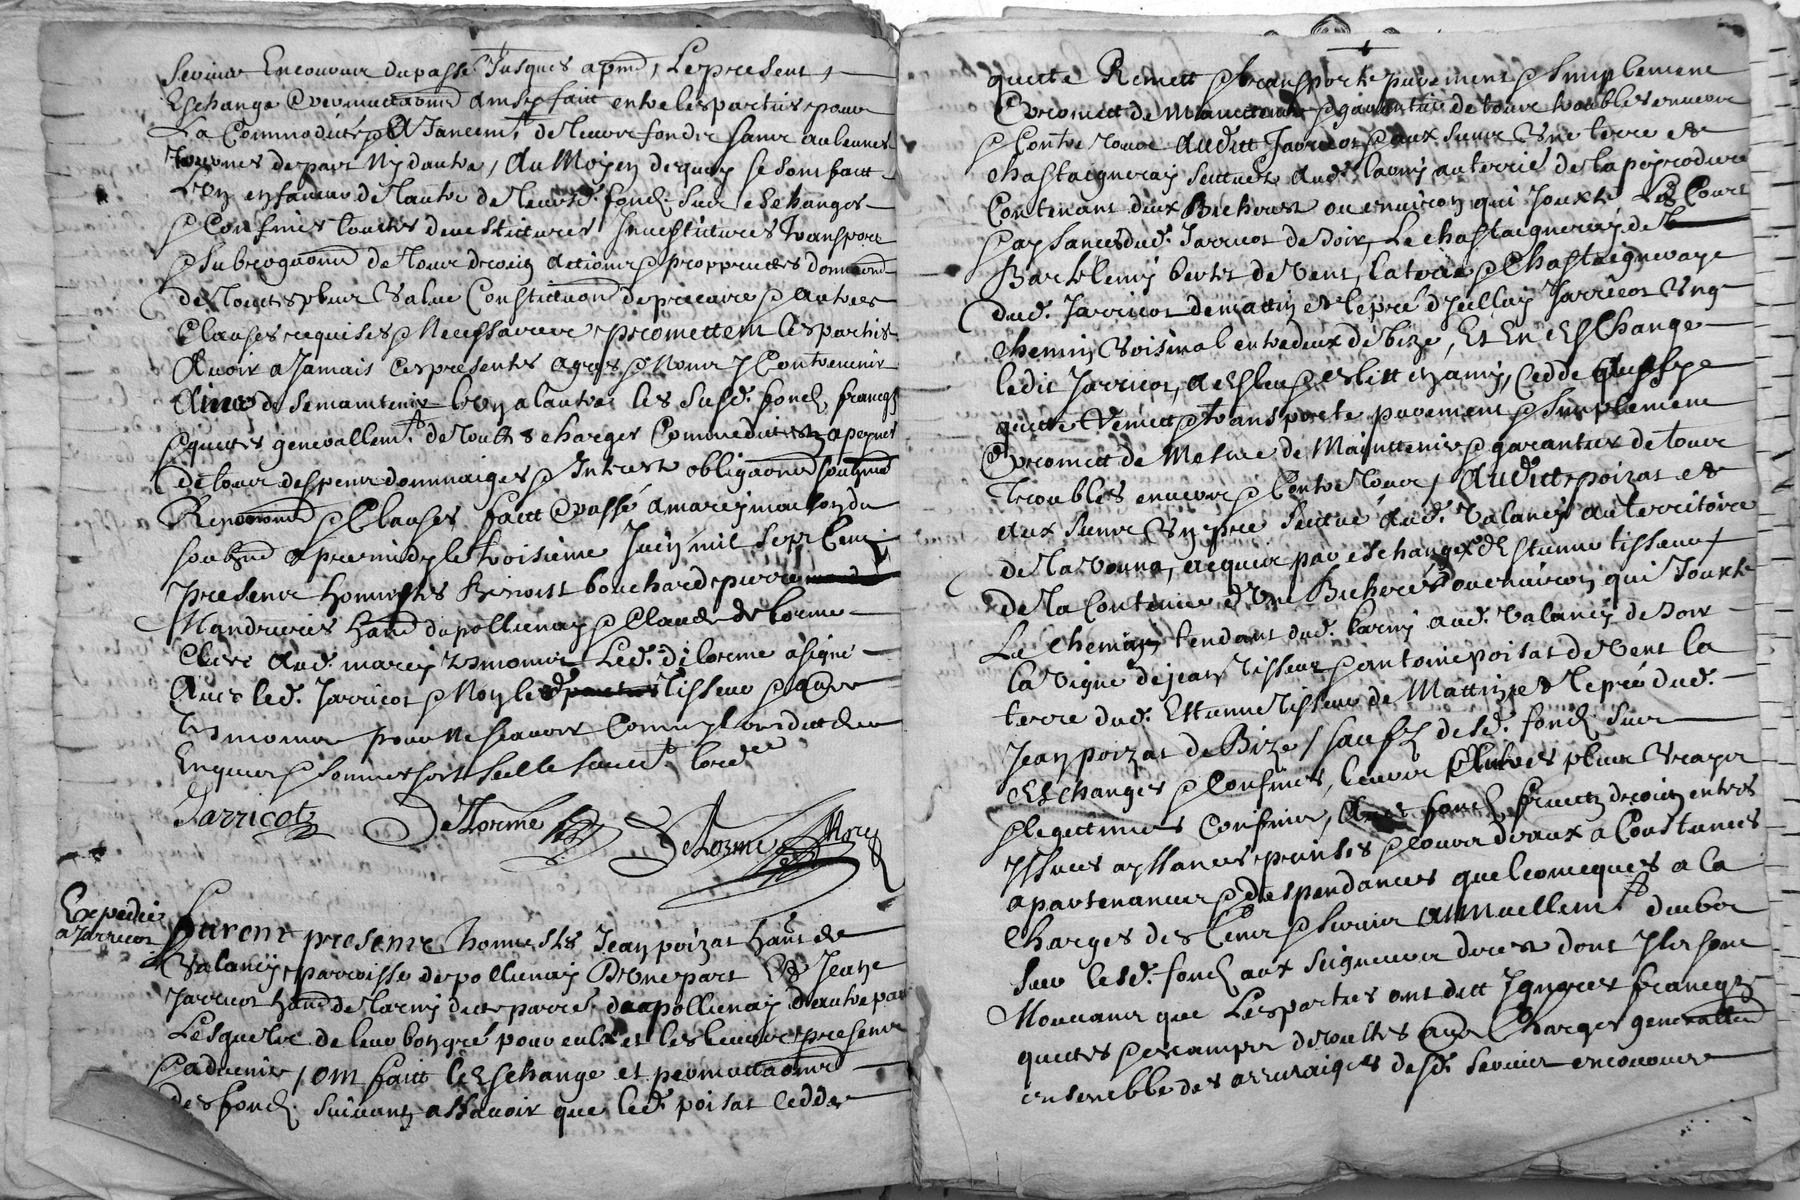 Servives Encouvur du passé Jusques a pnt, Le present
Eschange & permuttaõn Ainsy faitt entre les parties pour
La Commodité & AJancemt de leurs fonds sans aulcunes
tournes de part Ny dautre, Au Moyen dequoy se sont faitt
L'un en faveur de lautre de leursd. fonds sus eschanges
& Confines touttes devestitures Investitures transport
& subrogaõn de tous droits actions & propprietés donnaõn
de touttes plus Value Constituaõn de precaire & autres
Clauses requises & Necessaires promettent les parties
Avoir a Jamais ces presentes agres & Nons y Contrevenir
Ains de se maintenir l'un a lautre les susd. fonds francqs
& quittes generallemt de touttes charges Commedittes a peynes
de tous despens dommaiges & Interest obligaõns soubmis
Renonciaõns & Clauses faitt & passé a marcy maison du
soubzné apres midy le troisieme Juin mil sept Cent
Presents honnestes Benoist bouchard pierre
Mandrieres habt de pollienay & Claude de lorme
Clerc aud. marcy tesmoins Led. delorme a signé
Avec led. Jarricot & Non led. tisseur & autre
tesmoins pour ne scavoir Comme Ils ont ditt de ce
Enquis & sommes soit selle suivt lordce
Jarricot DeLorme DeLorme Nore
Expedié
a Jarricot
Furent presents honnestes Jean poizat habt de
Valancy parroisse de pollienay D'une part Et Jean
Jarricot habt de Larny ditte parre de pollienay dautre part
Lesquels de leur bon gré pour eulx et les leurs presents
& advenir, ont faitt l'Eschange et permuttaõn
des fonds suivants assavoir que led. poisat Cedde
quitte Remett & transporte purement & Simplement
& promett de Maintenir & garantir de tous troubles envers
& Contre tous Auditt Jarricot & aux siens Une terre et
chastaigneray scittués aud. larny au terrié de la peyrodiere
Contenant deux Bicherées ou environ qui Jouxte Les Cours
& aysances dud. Jarricot de soir, Le chastaigneray de
Barthlemy bertet de Vent, la terre & Chastaigneraye
dud. Jarricot de mattin et le pré d'Jcelluy Jarricot Ung
chemin Voisinal entredeux de bize, Et En Eschange
ledit Jarricot, a Esleu & eslitt Jl amis, Cedde
quitte Remett & transporte purement & Simplement
& promett de Mesme de Maintenir & garantir de tous
troubles envers & Contre tous, Auditt poizat et
aux siens Un pré scitué aud. Valancy au territoire
de la Vonna, acquis par eschange d'Estienne tisseur
de la Contenue d'Une Bicherée ou environ qui Jouxte
Le chemin tendant dud. larny aud. Valancy de soir
la Vigne de jean tisseur & antoine poisat de Vent la
terre dud. Estienne tisseur de Mattin et le pré dud.
Jean poizat de Bize, saufs desd. fonds sus
Eschanges & Confines, leurs autres plus Vrayes
& legittimes Confines, Avec fonds, fruicts droits entrés
Jssues aysances prinses & cours d'eaux a Constances
apartenances & despendances quelconcques a la
Charges des Cens & servis Annuellemt deubs
sur lesd. fonds aux seigneurs directs dont Jls sont
Mouvants que Lesparties ont ditt Jgnorer francqs
quittes & exampts de touttes autres Charges generallemt
ensemble des arreraiges desd. servis encouvers